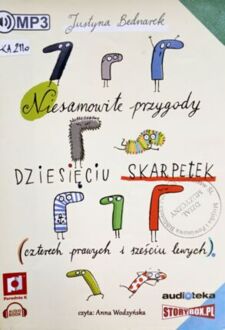 MP3
Justyna Bednarek
KA 2110
Niesamowite przygody
DZIESIĘCIU SKARPETEK
DZIAŁ
MUZYCZNY
(czterech prawych i sześciu lewych).
Poradnia K
czyta: Anna Wodzyńska
audioteka
STORYBOX.PL